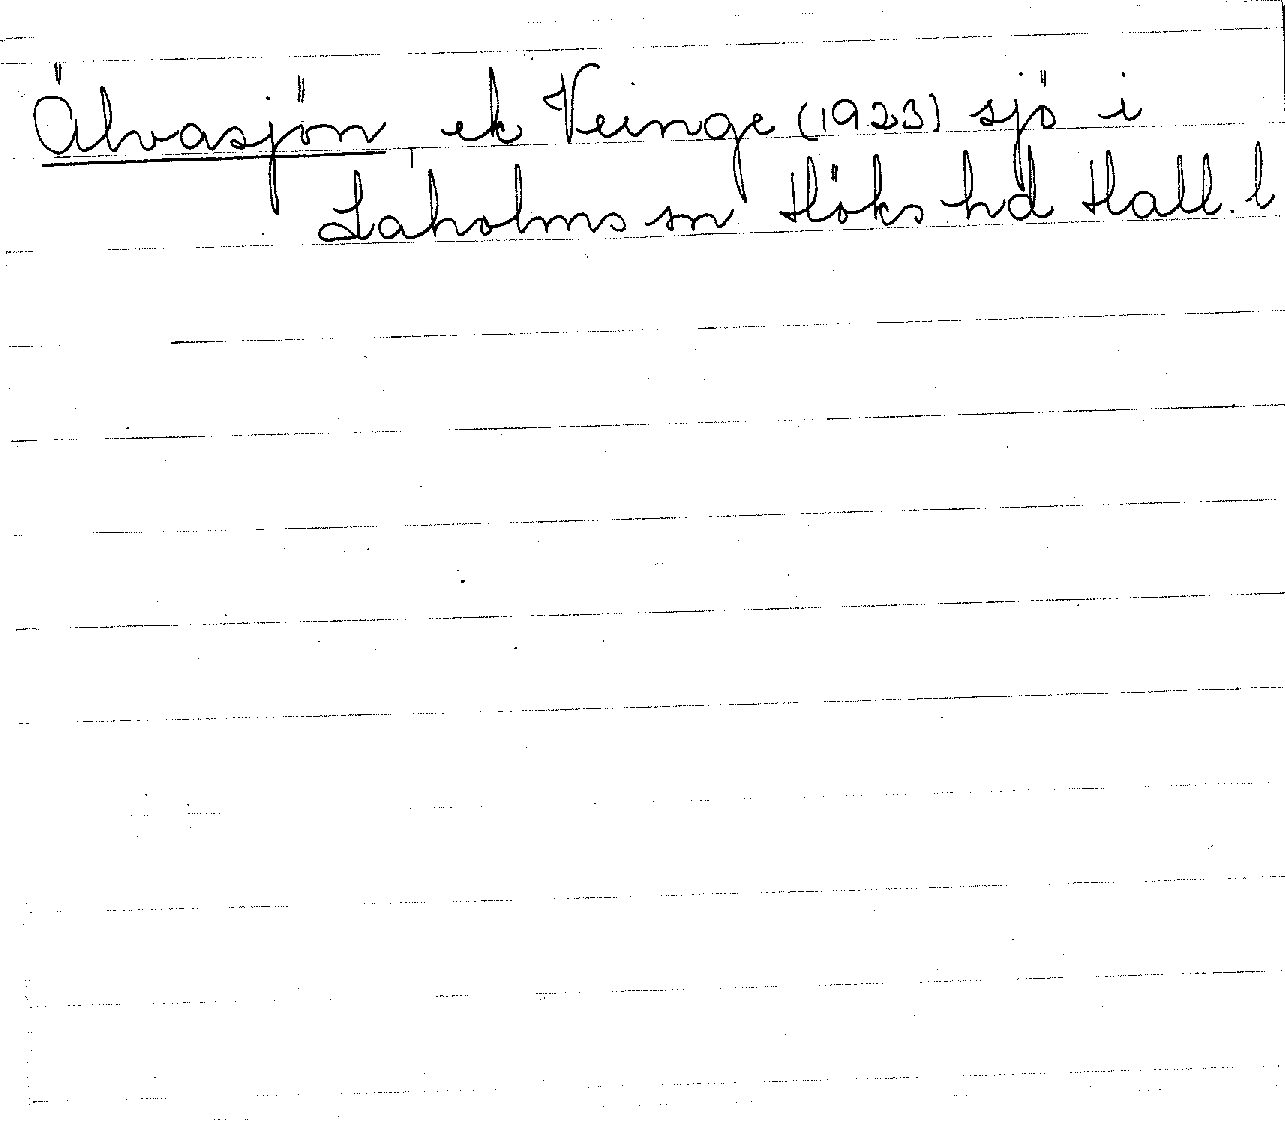 Älvasjön, ek Veinge (1923) sjö i
Laholms sn Höks hd Hall. l